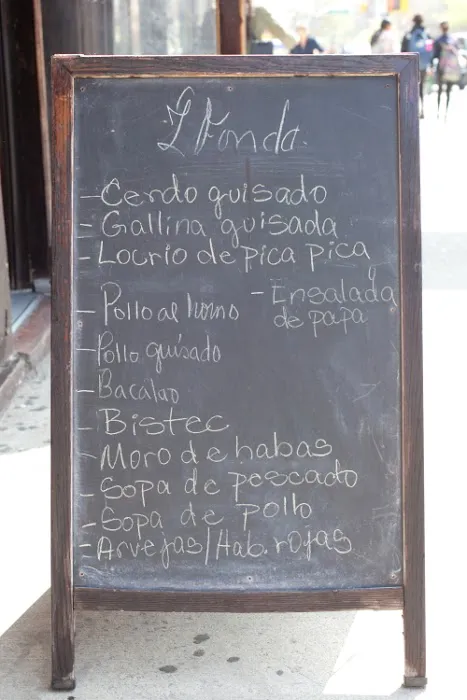 L Fonda
-Cerdo guisado
-Gallina guisada
-Locrio de pica pica
-Pollo al horno
-Ensalada
de papa
-Pollo guisado
-Bacalao
-Bistec
-Moro de habas
-Sopa de pescado
-Sopa de pollo
-Arvejas/Hab. rojas